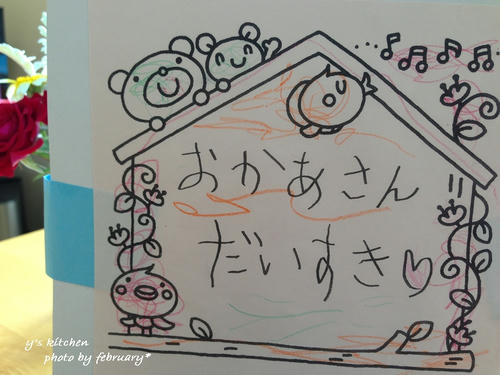 おかあさん
だいすき♡
y's kitchen
photo by february*